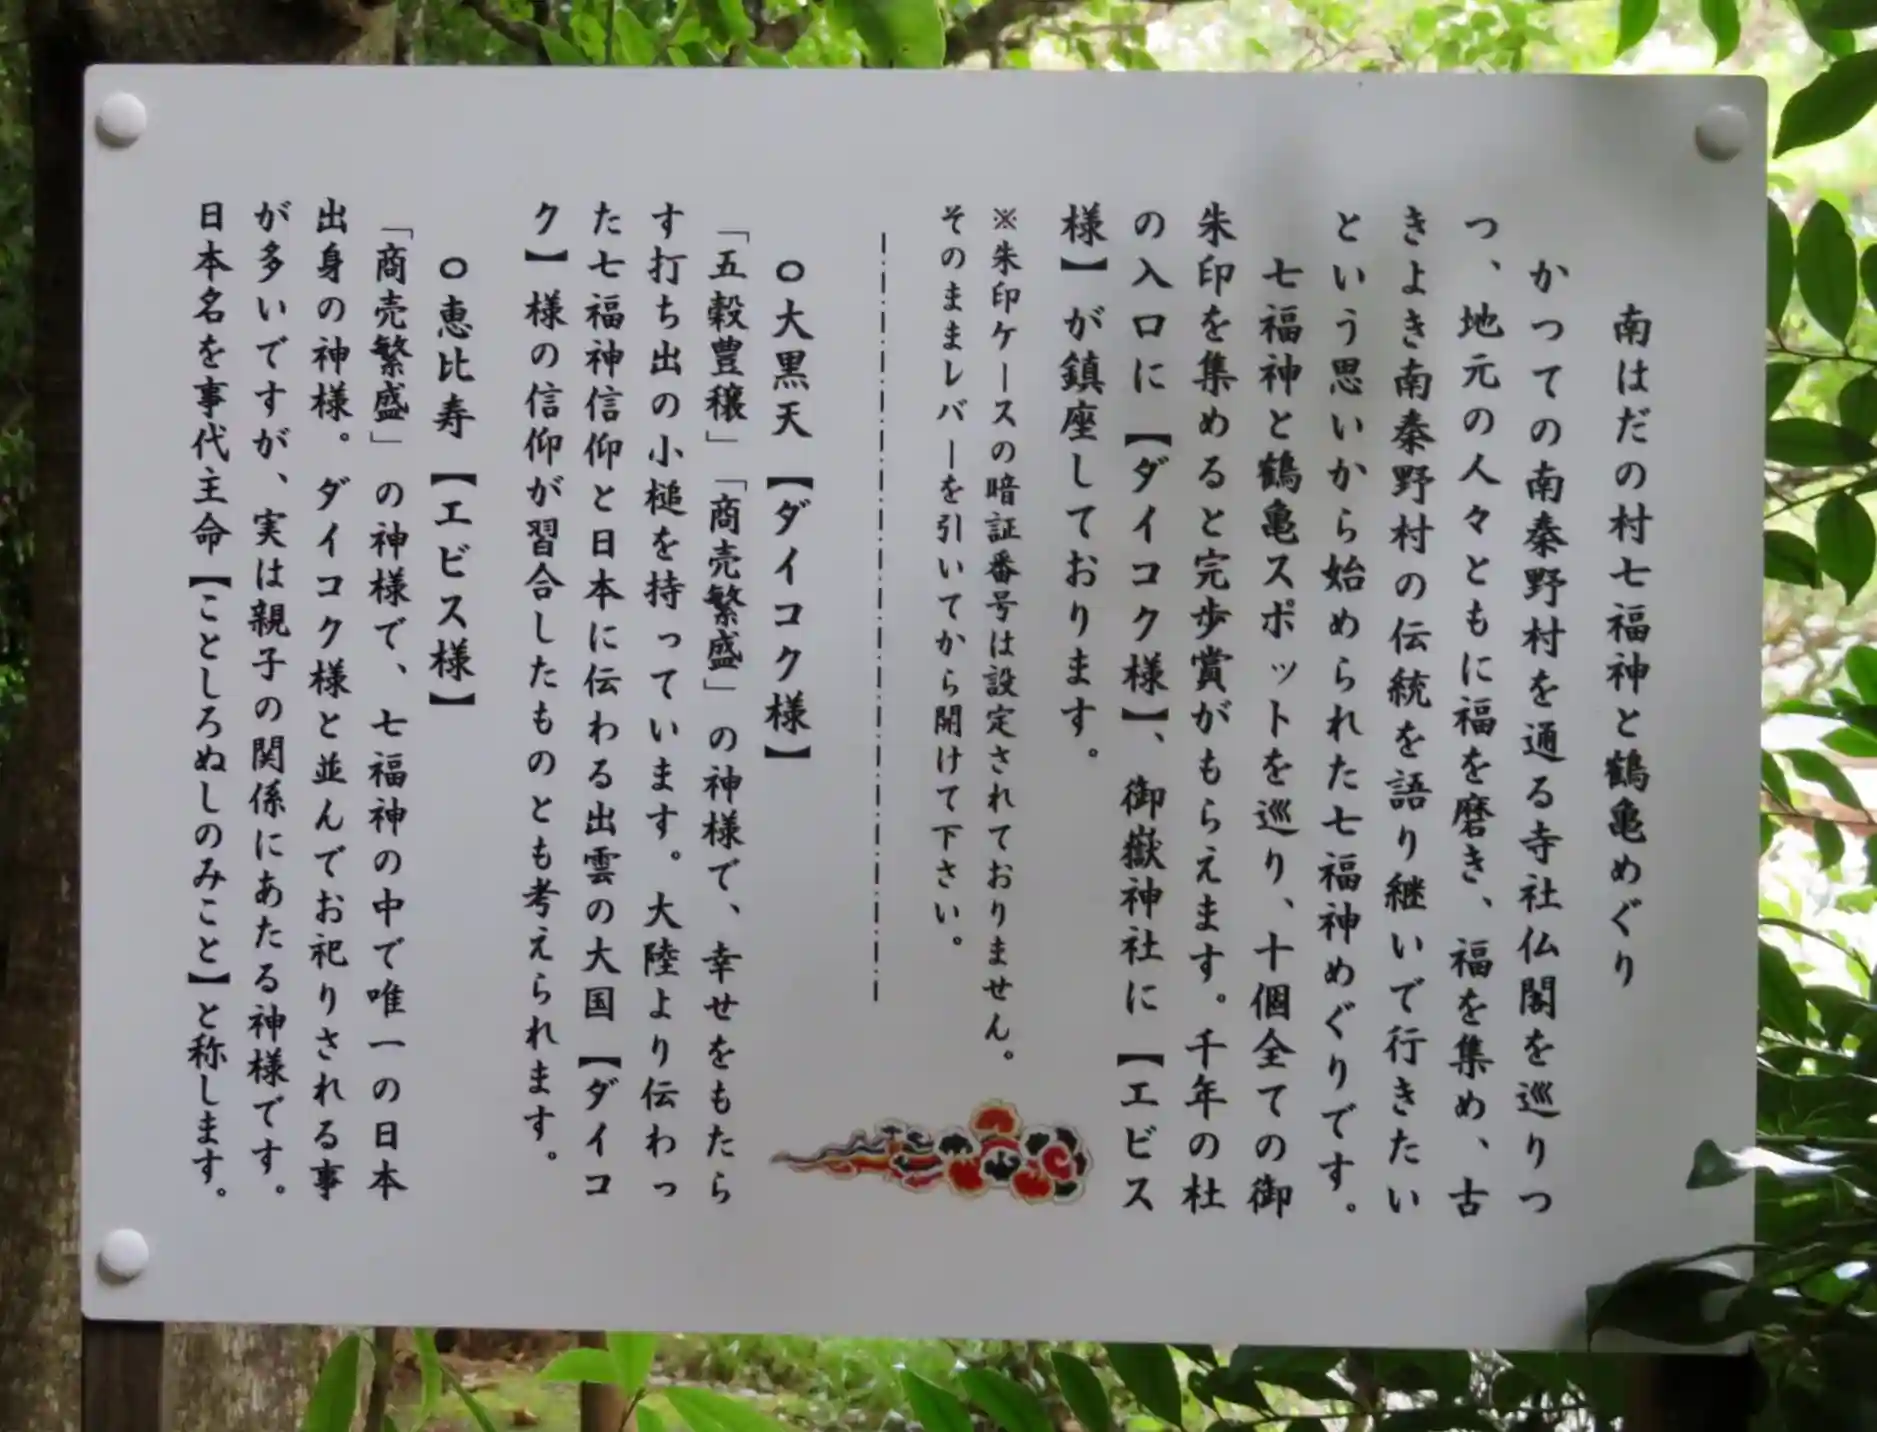 南はだの村七福神と鶴亀めぐり
かつての南秦野村を通る寺社仏閣を巡りつ
つ、地元の人々とともに福を磨き、福を集め、古
きよき南秦野村の伝統を語り継いで行きたい
という思いから始められた七福神めぐりです。
七福神と鶴亀スポットを巡り、十個全ての御
朱印を集めると完歩賞がもらえます。千年の杜
の入口に【ダイコク様】、御嶽神社に【エビス
様】が鎮座しております。
※朱印ケースの暗証番号は設定されておりません。
そのままレバーを引いてから開けて下さい。
○大黒天【ダイコク様】
「五穀豊穣」「商売繁盛」の神様で、幸せをもたら
す打ち出の小槌を持っています。大陸より伝わっ
た七福神信仰と日本に伝わる出雲の大国【ダイコ
ク】様の信仰が習合したものとも考えられます。
○恵比寿【エビス様】
「商売繁盛」の神様で、七福神の中で唯一の日本
出身の神様。ダイコク様と並んでお祀りされる事
が多いですが、実は親子の関係にあたる神様です。
日本名を事代主命【ことしろぬしのみこと】と称します。